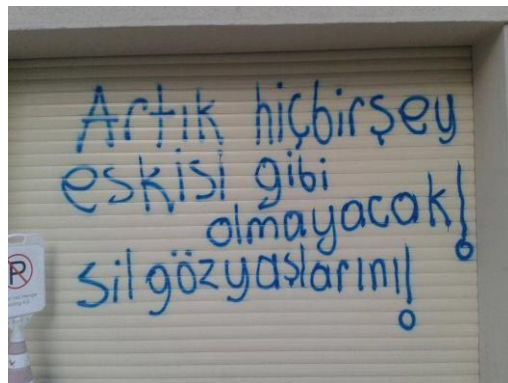 Artık hiçbirşey
eskisi gibi
olmayacak!
sil gözyaşlarını!
P